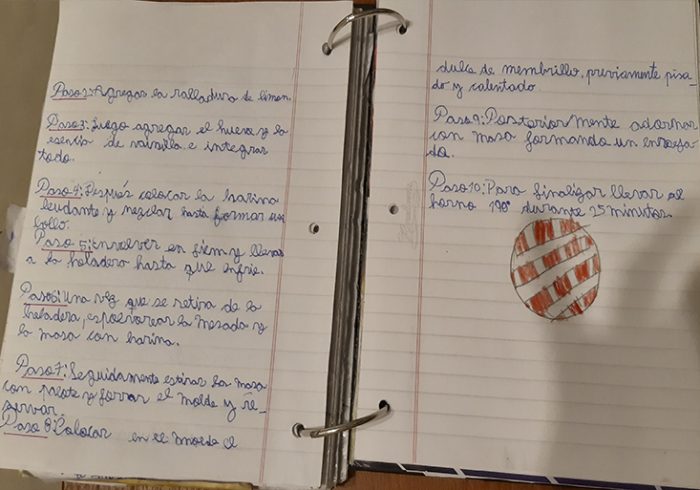 Paso 2: Agregar la ralladura de limon.
Paso 3: Luego agregar el huevo y la
esencia de vainilla e integrar
todo.
Paso 4: Después colocar la harina
leudante y mezclar hasta formar un
bollo.
Paso 5: Envolver en film y llevar
a la heladera hasta que enfríe.
Paso 6: Una vez que se retira de la
heladera, espolvorear la mesada y
la masa con harina.
Paso 7: Seguidamente estirar la masa
con palote y forrar el molde y re-
servar.
Paso 8: Colocar en el molde el
dulce de membrillo, previamente pisa-
do y calentado.
Paso 9: Posteriormente adornar
con masa formando un enreja-
do.
Paso 10: Para finalizar llevar al
horno 190° durante 25 minutos.